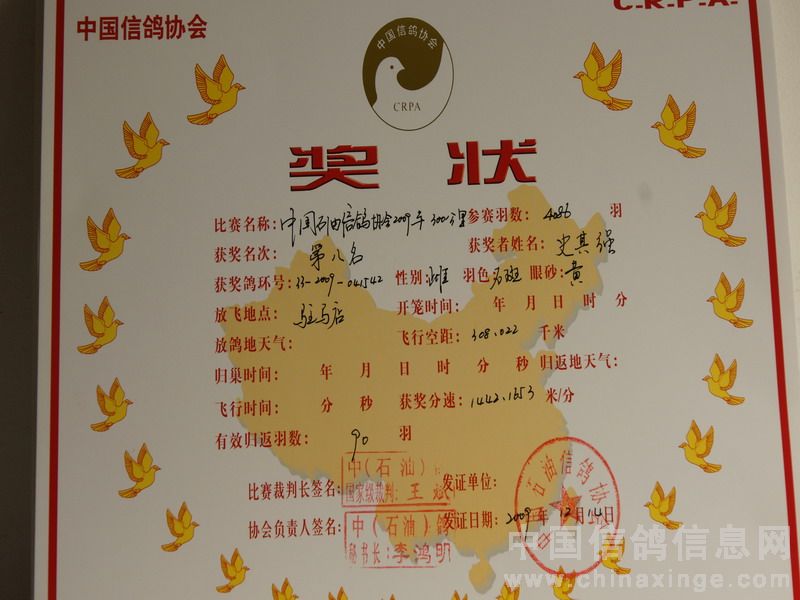 中国信鸽协会
C.R.P.A.
中国信鸽协会
CRPA
奖 状
比赛名称：中国石油信鸽协会2009年300公里 参赛羽数：4086 羽
获奖名次：第八名 获奖者姓名：史其强
获奖鸽环号：33-2009-041542 性别：雌 羽色：石斑 眼砂：黄
放飞地点：驻马店 开笼时间： 年 月 日 时 分
放鸽地天气： 飞行空距：308.022 千米
归巢时间： 年 月 日 时 分 秒 归返地天气：
飞行时间： 分 秒 获奖分速：1442.1653 米/分
有效归返羽数：90 羽
比赛裁判长签名： 发证单位：
中(石油)
国家级裁判：王斌
协会负责人签名： 发证日期：2009年12月14日
中(石油)鸽
秘书长：李鸿明
石油信鸽协
中国信鸽信息网
www.chinaxinge.com